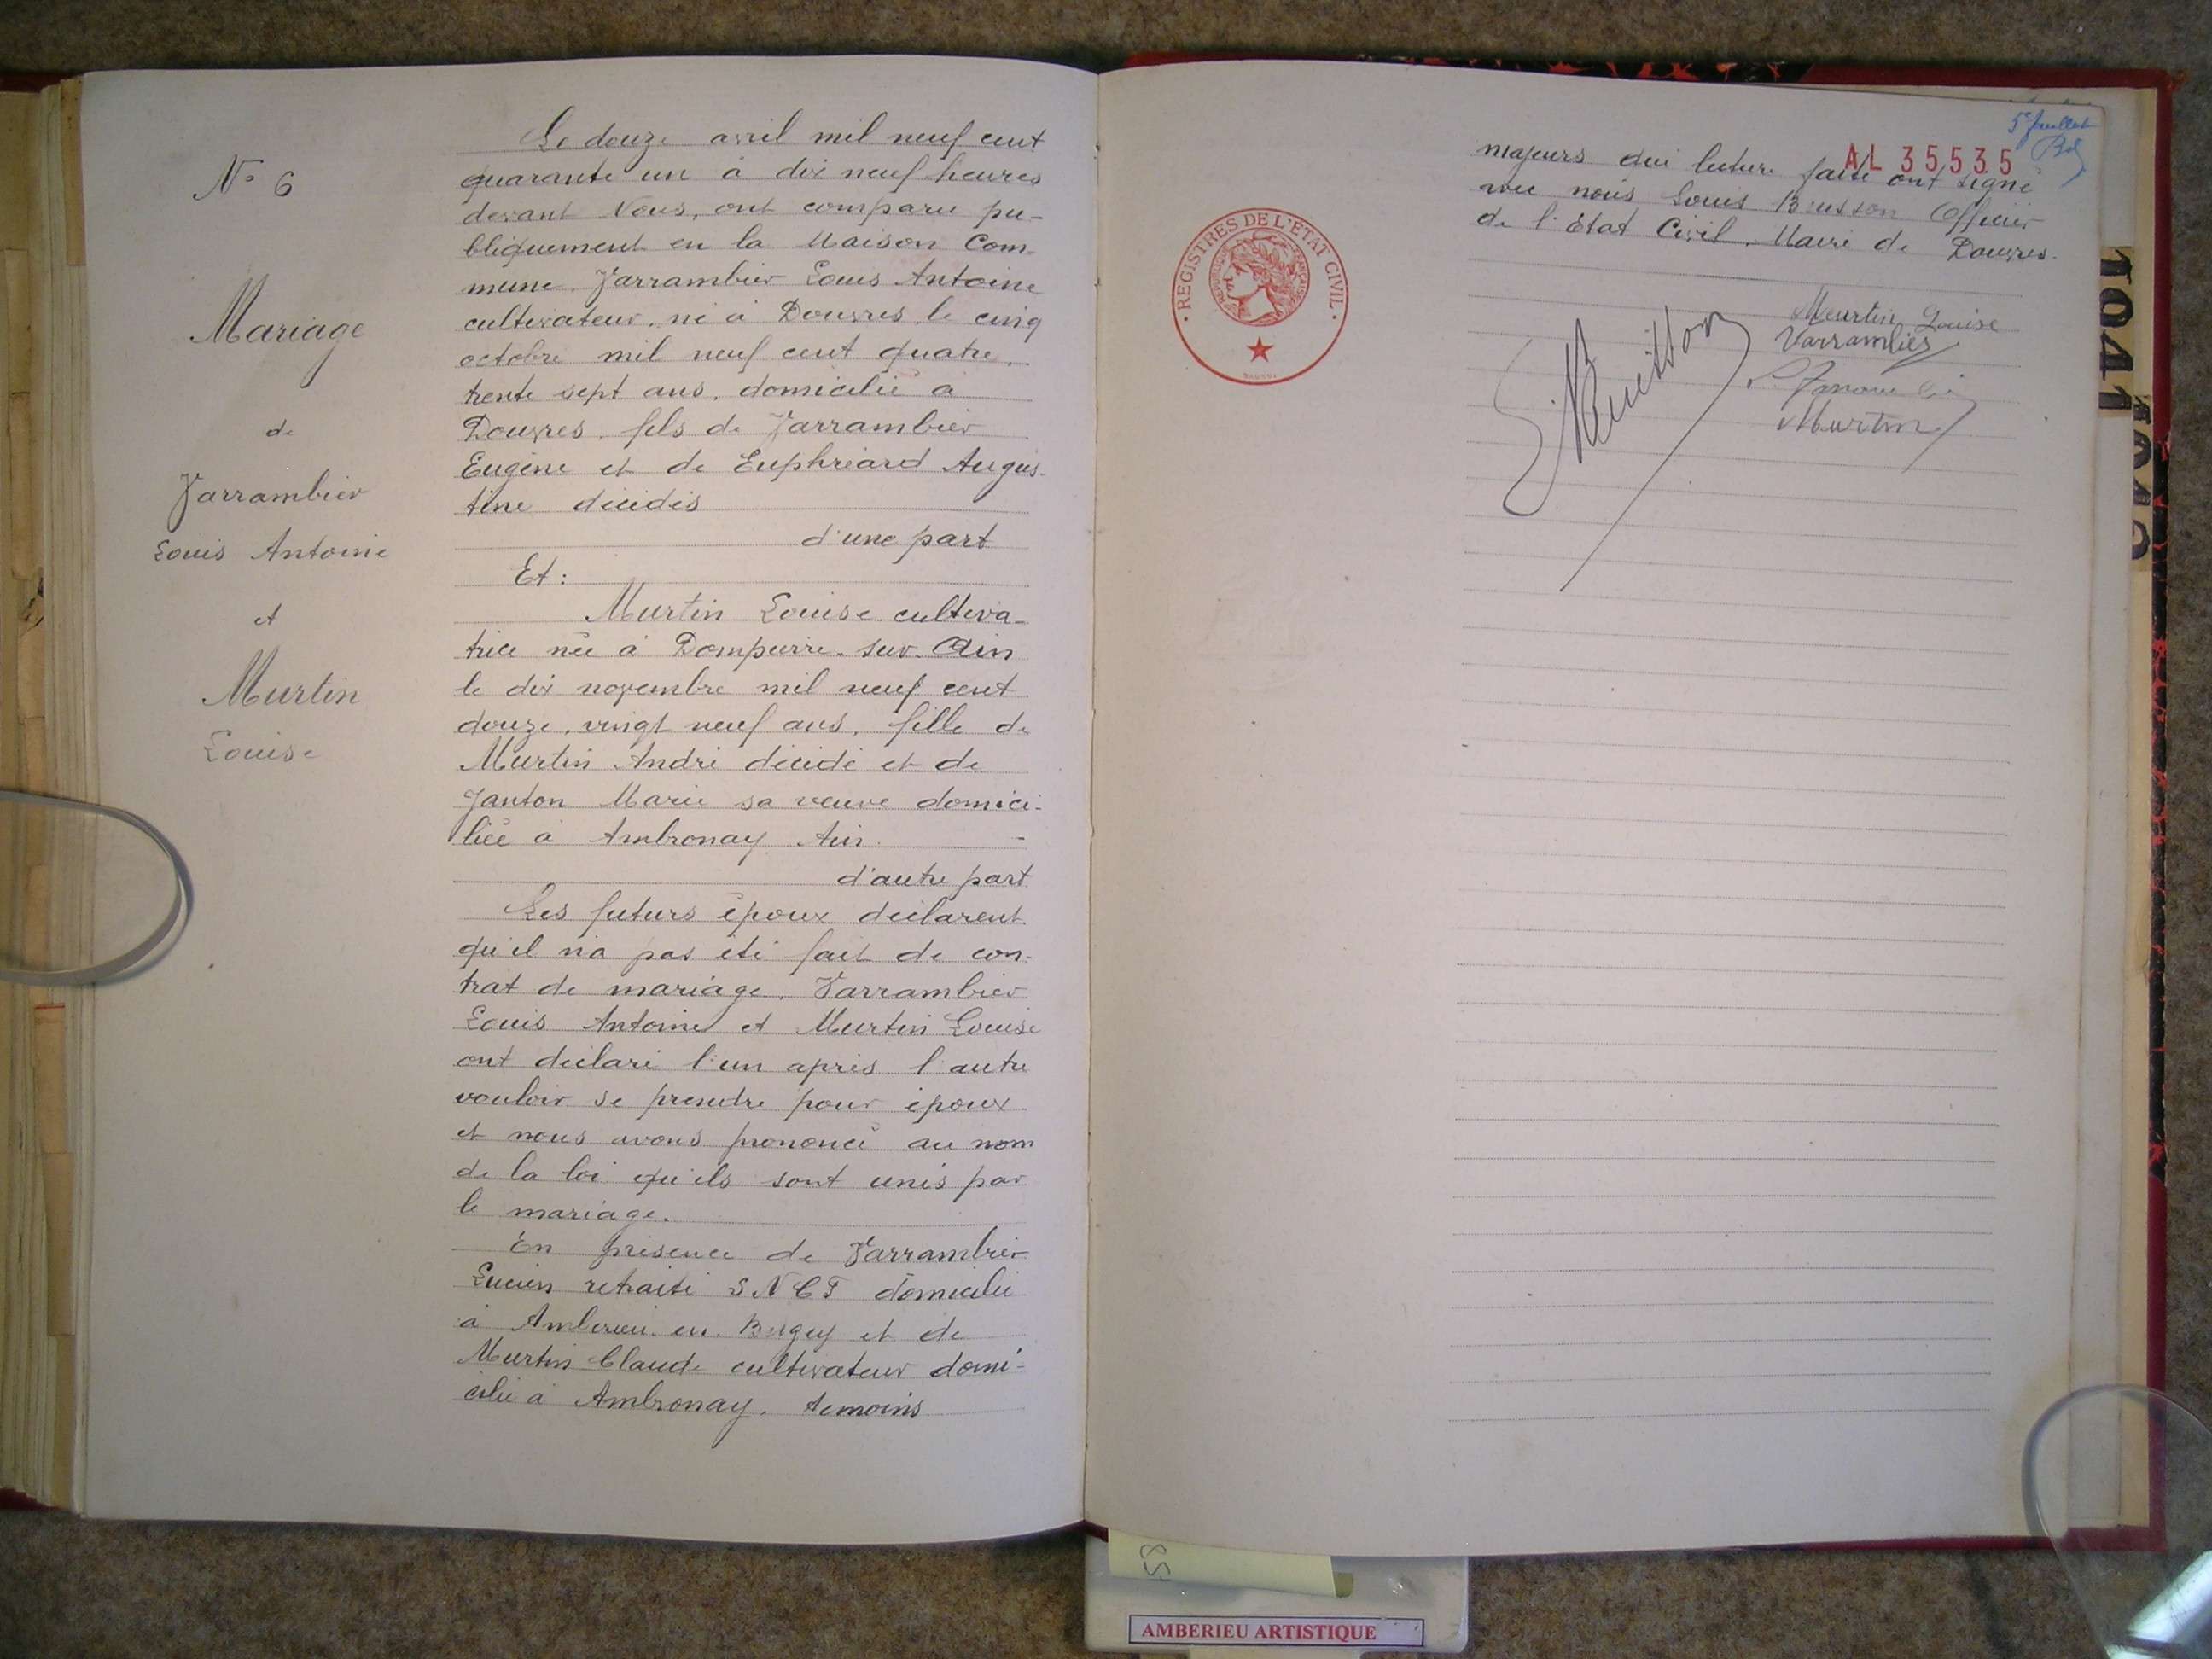 N° 6
Mariage
de
Varrambier
Louis Antoine
et
Murtin
Louise
Le douze avril mil neuf cent
quarante un à dix neuf heures
devant Nous, ont comparu pu-
bliquement en la Maison Com-
mune. Varrambier Louis Antoine
cultivateur, né à Douvres le cinq
octobre mil neuf cent quatre,
trente sept ans, domicilié à
Douvres, fils de Varrambier
Eugène et de Euphriard Augus-
tine décédés
d'une part
Et :
Murtin Louise cultiva-
trice née à Dompierre-sur-Ain
le dix novembre mil neuf cent
douze, vingt neuf ans, fille de
Murtin André décédé et de
Janton Marie sa veuve domici-
liée à Ambronay Ain
d'autre part
Les futurs époux déclarent
qu'il n'a pas été fait de con-
trat de mariage. Varrambier
Louis Antoine et Murtin Louise
ont déclaré l'un après l'autre
vouloir se prendre pour époux
et nous avons prononcé au nom
de la loi qu'ils sont unis par
le mariage.
En présence de Varrambier
Lucien retraité S.N.C.F domicilié
à Amberieu en Bugey et de
Murtin Claude cultivateur domi-
cilié à Ambronay. témoins
5e feuillet
AL 35535
majeurs qui lecture faite ont signé
avec nous Louis Buisson Officier
de l'Etat Civil, Maire de Douvres.
REGISTRES DE L'ETAT CIVIL
Murtin Louise
Varrambier
Buisson
Murtin
1941
AMBERIEU ARTISTIQUE